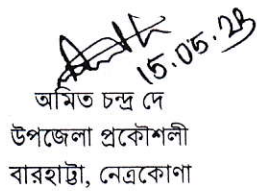 15.05.23
অমিত চন্দ্র দে
উপজেলা প্রকৌশলী
বারহাট্টা, নেত্রকোণা